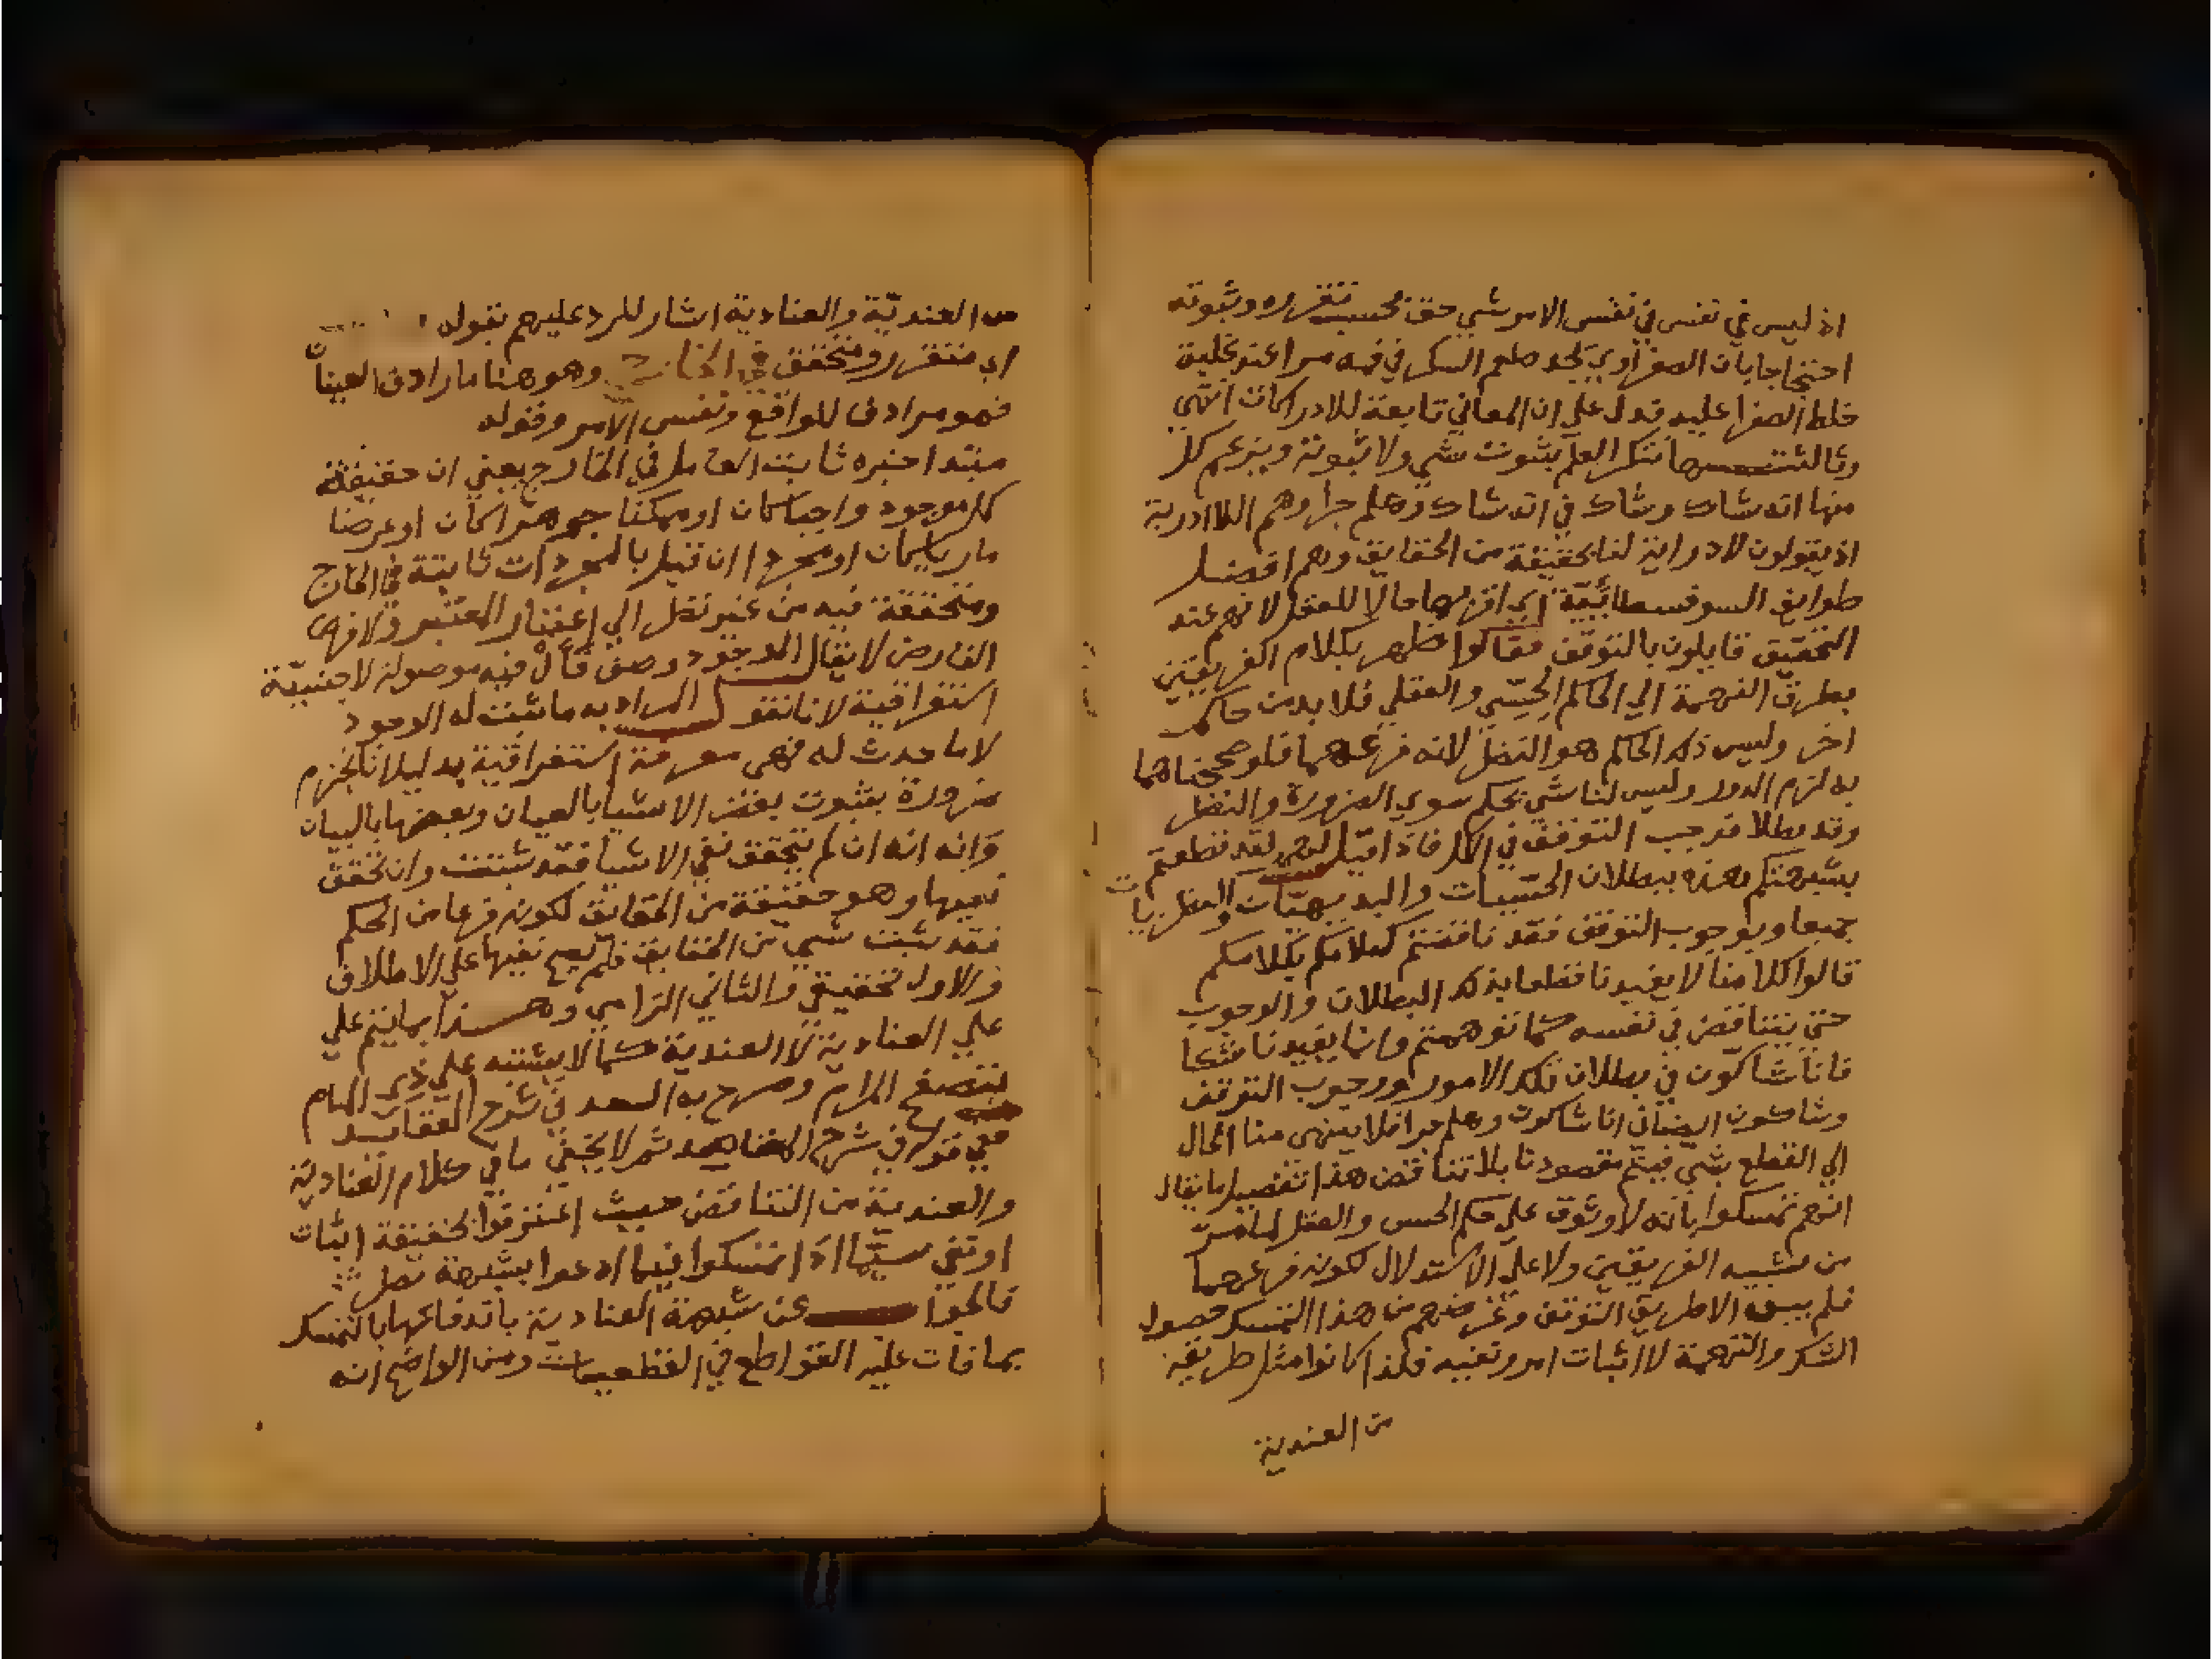 اذ ليس في نفس في نفس الامر شي حق بحسب تقرره وثبوته
احتجاجا بان الصفراوي يجد طعم السكر في فيه مرا عند غلبة
خلط الصفرا عليه فدل علي ان المعاني تابعة للادراكات انتهي
وثالثتها تنكر العلم بثبوت شي ولا ثبوته ويزعم كل
منها انه شاك وشاك في انه شاك وهلم جرا وهم اللاادرية
اذ يقولون لا دراية لنا بحقيقة من الحقايق وهم افضل
طوايف السوفسطائية اي اقربها حالا للعقل لانهم عند
التحقيق قايلون بالتوقف فقالوا ظهر بكلام الفريقين
بطرق التهمة الي الحاكم الحسي والعقلي فلا بد من حاكم
اخر وليس ذلك الحاكم هو النظر لانه فرعهما فلو صححناهما
به لزم الدور وليس لنا شي نحكم سوي الضرورة والنظر
وقد بطلا فوجب التوقف في الكل فاذا قيل لهم لقد قطعتم
بشبهتكم هذه ببطلان الحسيات والبديهيات والنظريات
جميعا وبوجوب التوقف فقد ناقضتم كلامكم بكلامكم
قالوا كلامنا لا يفيدنا قطعا بذلك البطلان والوجوب
حتي يتناقض في نفسه كما توهمتم وانما يفيدنا شكا
فانا شاكون في بطلان تلك الامور ووجوب التوقف
وشاكون ايضا في انا شاكون وهلم جرا فلا ينتهي منا الحال
الي القطع بشي فيتم مقصودنا بلا تناقض هذا تفصيل ما يقال
انهم تمسكوا بانه لا وثوق علي حكم الحس والعقل لما مر
من شبه الفريقين ولا علي الاستدلال لكونه فرعهما
فلم يبق الا طريق التوقف وغرضهم من هذا التمسك حصول
الشك والتهمة لا اثبات امر ونفيه فلذا كانوا مثل طريقه
من العندية
من العندية والعنادية اشار للرد عليهم بقوله
اي متقرر ومتحقق في الخارج وهو هنا ما رادف العينا
فهو مرادف للواقع ونفس الامر وقوله
مبتدا خبره ثابت العامل في الخارج يعني ان حقيقة
كل موجود واجبا كان او ممكنا جوهرا كان او عرضا
ماديا كان او مجردا ان قيل بالمجردات ثابتة في الخارج
ومتحققة فيه من غير نظر الي اعتبار المعتبر ولا فرض
الفارض لا يقال الوجود وصف فأل فيه موصولة لا جنسية
استغراقية لانا نقول المراد به ما ثبت له الوجود
لا ما حدث له فهي معرفة استغراقية بدليل انا نجزم
ضرورة بثبوت بعض الاشيا بالعيان وبعضها بالبيان
وانه انه ان لم يتحقق نفي الاشيا فقد ثبتت وان تحقق
نفيها وهو حقيقة من الحقايق لكونه فرعا من الحكم
فقد ثبت شي من الحقايق فلم يصح نفيها علي الاطلاق
والاول تحقيقي والثاني الزامي وهذا انما يتم علي
علي العنادية لا العندية كما لا يشتبه علي ذي الهام
بتصفح المرام وصرح به السعد في شرح العقايد
في شرح المقاصد ثم لا يخفي ما في كلام العنادية
والعندية من التناقض حيث اعترفوا بحقيقة اثبات
او نفي سيما اذا تمسكوا فيما ادعوا بشبهة
فالجواب عن شبهة العنادية باندفاعها بالتمسك
بما قامت عليه القواطع في القطعيات ومن الواضح انه